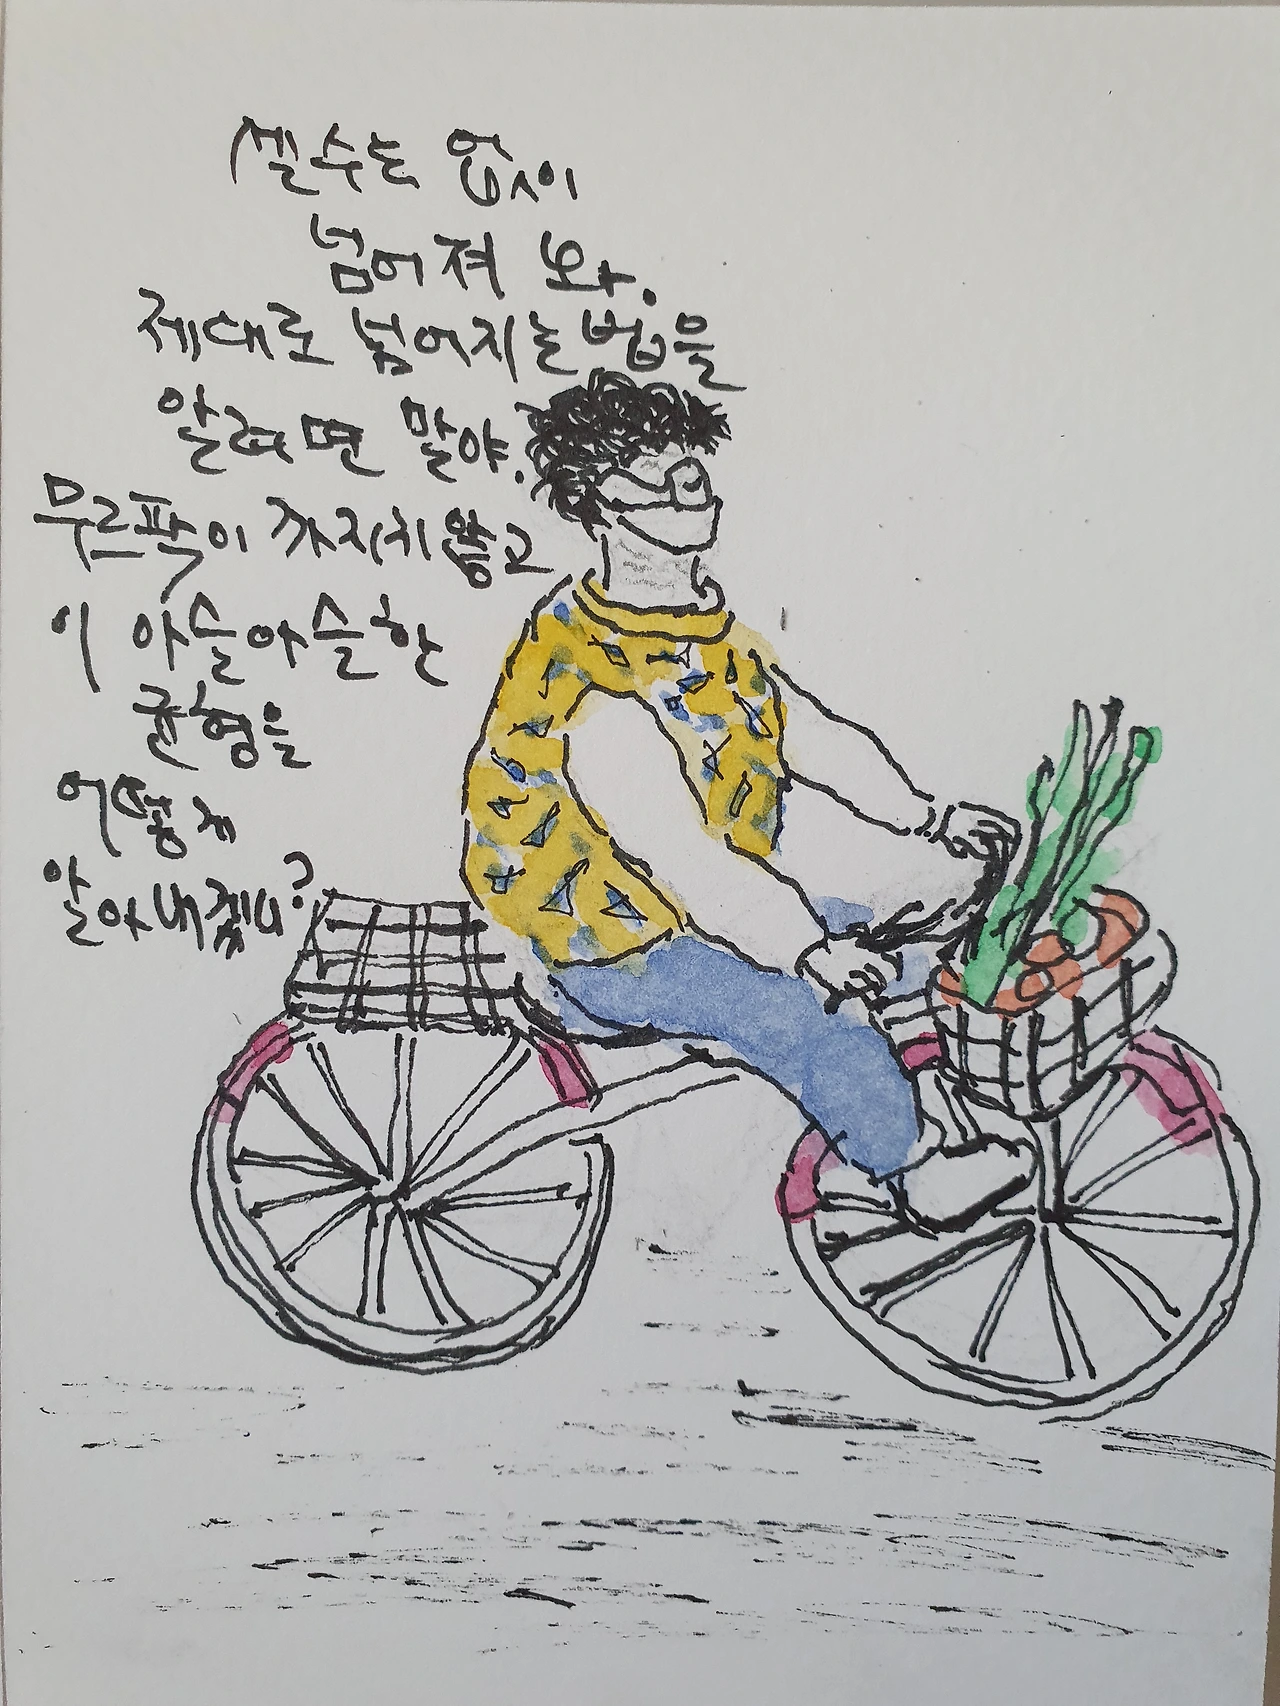 셀수는 없이
넘어져 봐.
제대로 넘어지는법을
알려면 말야.
무르팍이 까지지않고
이 아슬아슬한
균형을
어떻게
알아내겠니?